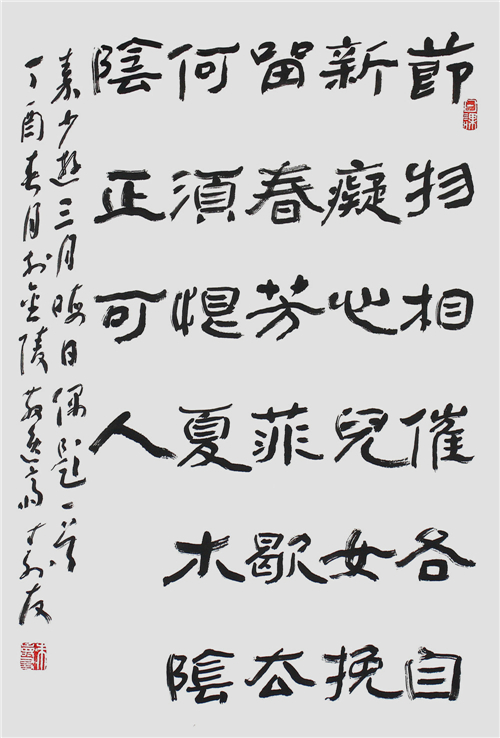 節物相催各自
新癡心兒女挽
留春芳菲歇去
何須恨夏木陰
陰正可人
秦少遊三月晦日偶題一首
丁酉春月於金陵